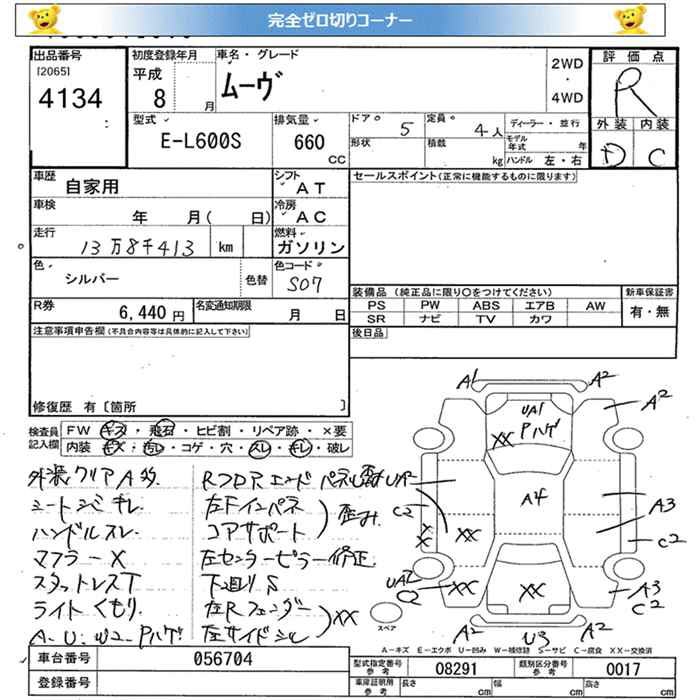 完全ゼロ切りコーナー
出品番号
[2065]
4134
初度登録年月
平成
8 月
車名・グレード
ムーヴ
2WD
・
4WD
評価点
R
外装 内装
D C
型式
E-L600S
排気量
660
CC
ドア
5
形状
定員
4人
積載
kg
ディーラー・並行
モデル年式 年
ハンドル 左・右
車歴
自家用
シフト
AT
セールスポイント(正常に機能するものに限ります)
車検
年 月( 日)
冷房
AC
走行
13万8千413 km
燃料
ガソリン
色
シルバー
色替
色コード
S07
装備品(純正品に限り○をつけてください)
PS PW ABS エアB AW
SR ナビ TV カワ
新車保証書
有・無
R券
6,440円
名変通知期限
月 日
後日品
注意事項申告欄(不具合内容等は具体的に記入して下さい)
修復歴 有〔箇所 〕
検査員記入欄
FW キズ・飛石・ヒビ割・リペア跡・×要
内装 キズ・汚れ・コゲ・穴・スレ・キレ・破レ
外装クリアA多
シートシミキレ
ハンドルスレ
マフラーX
スタットレスT
ライトくもり
A.U.W2.Pハゲ
RフロアエンドパネルU
左Fインパネ
コアサポート
歪み
左センターピラー修正
下廻りS
左Rフェンダー
左サイドシル
XX
A1
A2
A2
UA1
Pハゲ
XX
UA2
C2
A4
A3
C2
X
X
XX
UA2
C2
XX
XX
A3
C2
A2
U3
A2
スペア
A-キズ E-エクボ U-凹み W-補修跡 S-サビ C-腐食 XX-交換済
車台番号
056704
登録番号
型式指定番号
参考
08291
類別区分番号
参考
0017
車庫証明用
参考
長さ cm
幅 cm
高さ cm